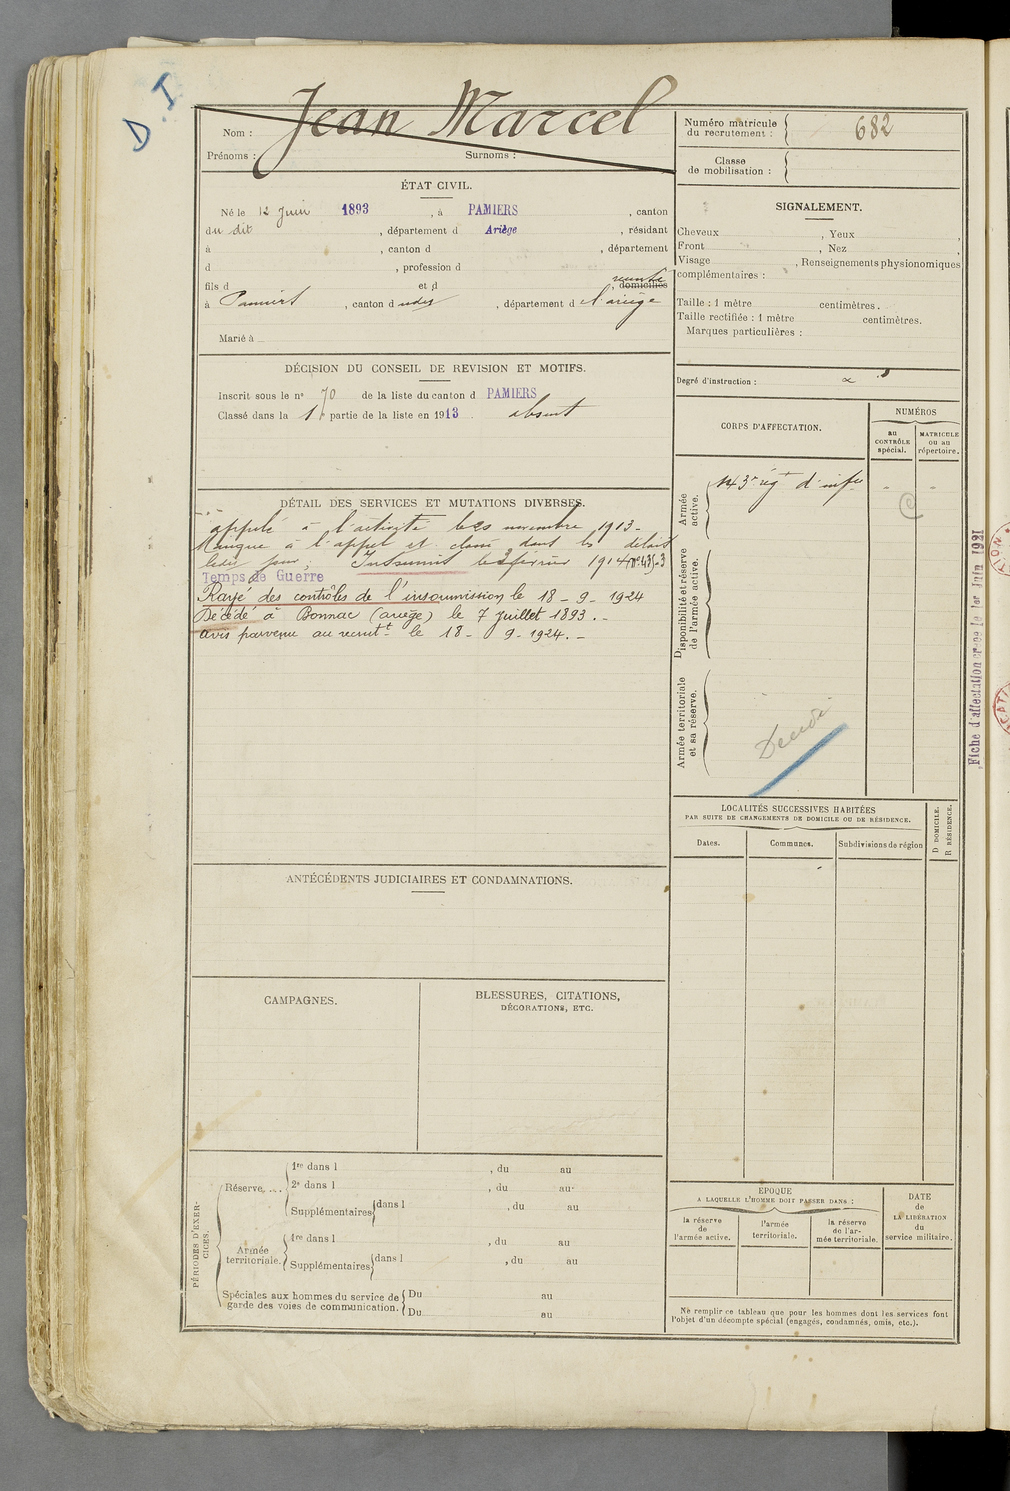 D. I
Jean Marcel
Nom :
Prénoms : Surnoms :
Numéro matricule du recrutement : 682
Classe de mobilisation :
ÉTAT CIVIL.
Né le 12 Juin 1893, à PAMIERS, canton
du dit, département d Ariège, résidant
à , canton d , département
d , profession d
fils d et d , domiciliés
à Pamiers, canton dudit, département d l'ariège
Marié à
SIGNALEMENT.
Cheveux , Yeux ,
Front , Nez
Visage , Renseignements physionomiques
complémentaires :
Taille : 1 mètre centimètres.
Taille rectifiée : 1 mètre centimètres.
Marques particulières :
Degré d'instruction :
DÉCISION DU CONSEIL DE REVISION ET MOTIFS.
Inscrit sous le n° 70 de la liste du canton d PAMIERS
Classé dans la 1 partie de la liste en 1913 absent
CORPS D'AFFECTATION.
NUMÉROS
au CONTRÔLE spécial.
MATRICULE ou au répertoire.
Armée active.
143e régt d'infie
Disponibilité et réserve de l'armée active.
Armée territoriale et sa réserve.
Décédé
DÉTAIL DES SERVICES ET MUTATIONS DIVERSES.
appelé à l'activité le novembre 1913-
Manque à l'appel et dans les délais
Insoumis le 3 février 1914
Temps de Guerre
Rayé des contrôles de l'insoumission le 18-9-1924
Décédé à Bonnac (ariège) le 7 Juillet 1893.-
avis parvenu au recrutt le 18-9-1924.-
Fiche d'affectation créée le 1er Juin 1921
LOCALITÉS SUCCESSIVES HABITÉES
PAR SUITE DE CHANGEMENTS DE DOMICILE OU DE RÉSIDENCE.
Dates. Communes. Subdivisions de région
D DOMICILE.
R RÉSIDENCE.
ANTÉCÉDENTS JUDICIAIRES ET CONDAMNATIONS.
CAMPAGNES.
BLESSURES, CITATIONS,
DÉCORATIONS, ETC.
PÉRIODES D'EXERCICES.
Réserve....
1re dans l , du au
2e dans l , du au
Supplémentaires dans l , du au
Armée territoriale.
1re dans l , du au
Supplémentaires dans l , du au
Spéciales aux hommes du service de garde des voies de communication.
Du au
Du au
EPOQUE
A LAQUELLE L'HOMME DOIT PASSER DANS :
la réserve de l'armée active.
l'armée territoriale.
la réserve de l'armée territoriale.
DATE de LA LIBÉRATION du service militaire.
Ne remplir ce tableau que pour les hommes dont les services font
l'objet d'un décompte spécial (engagés, condamnés, omis, etc.).